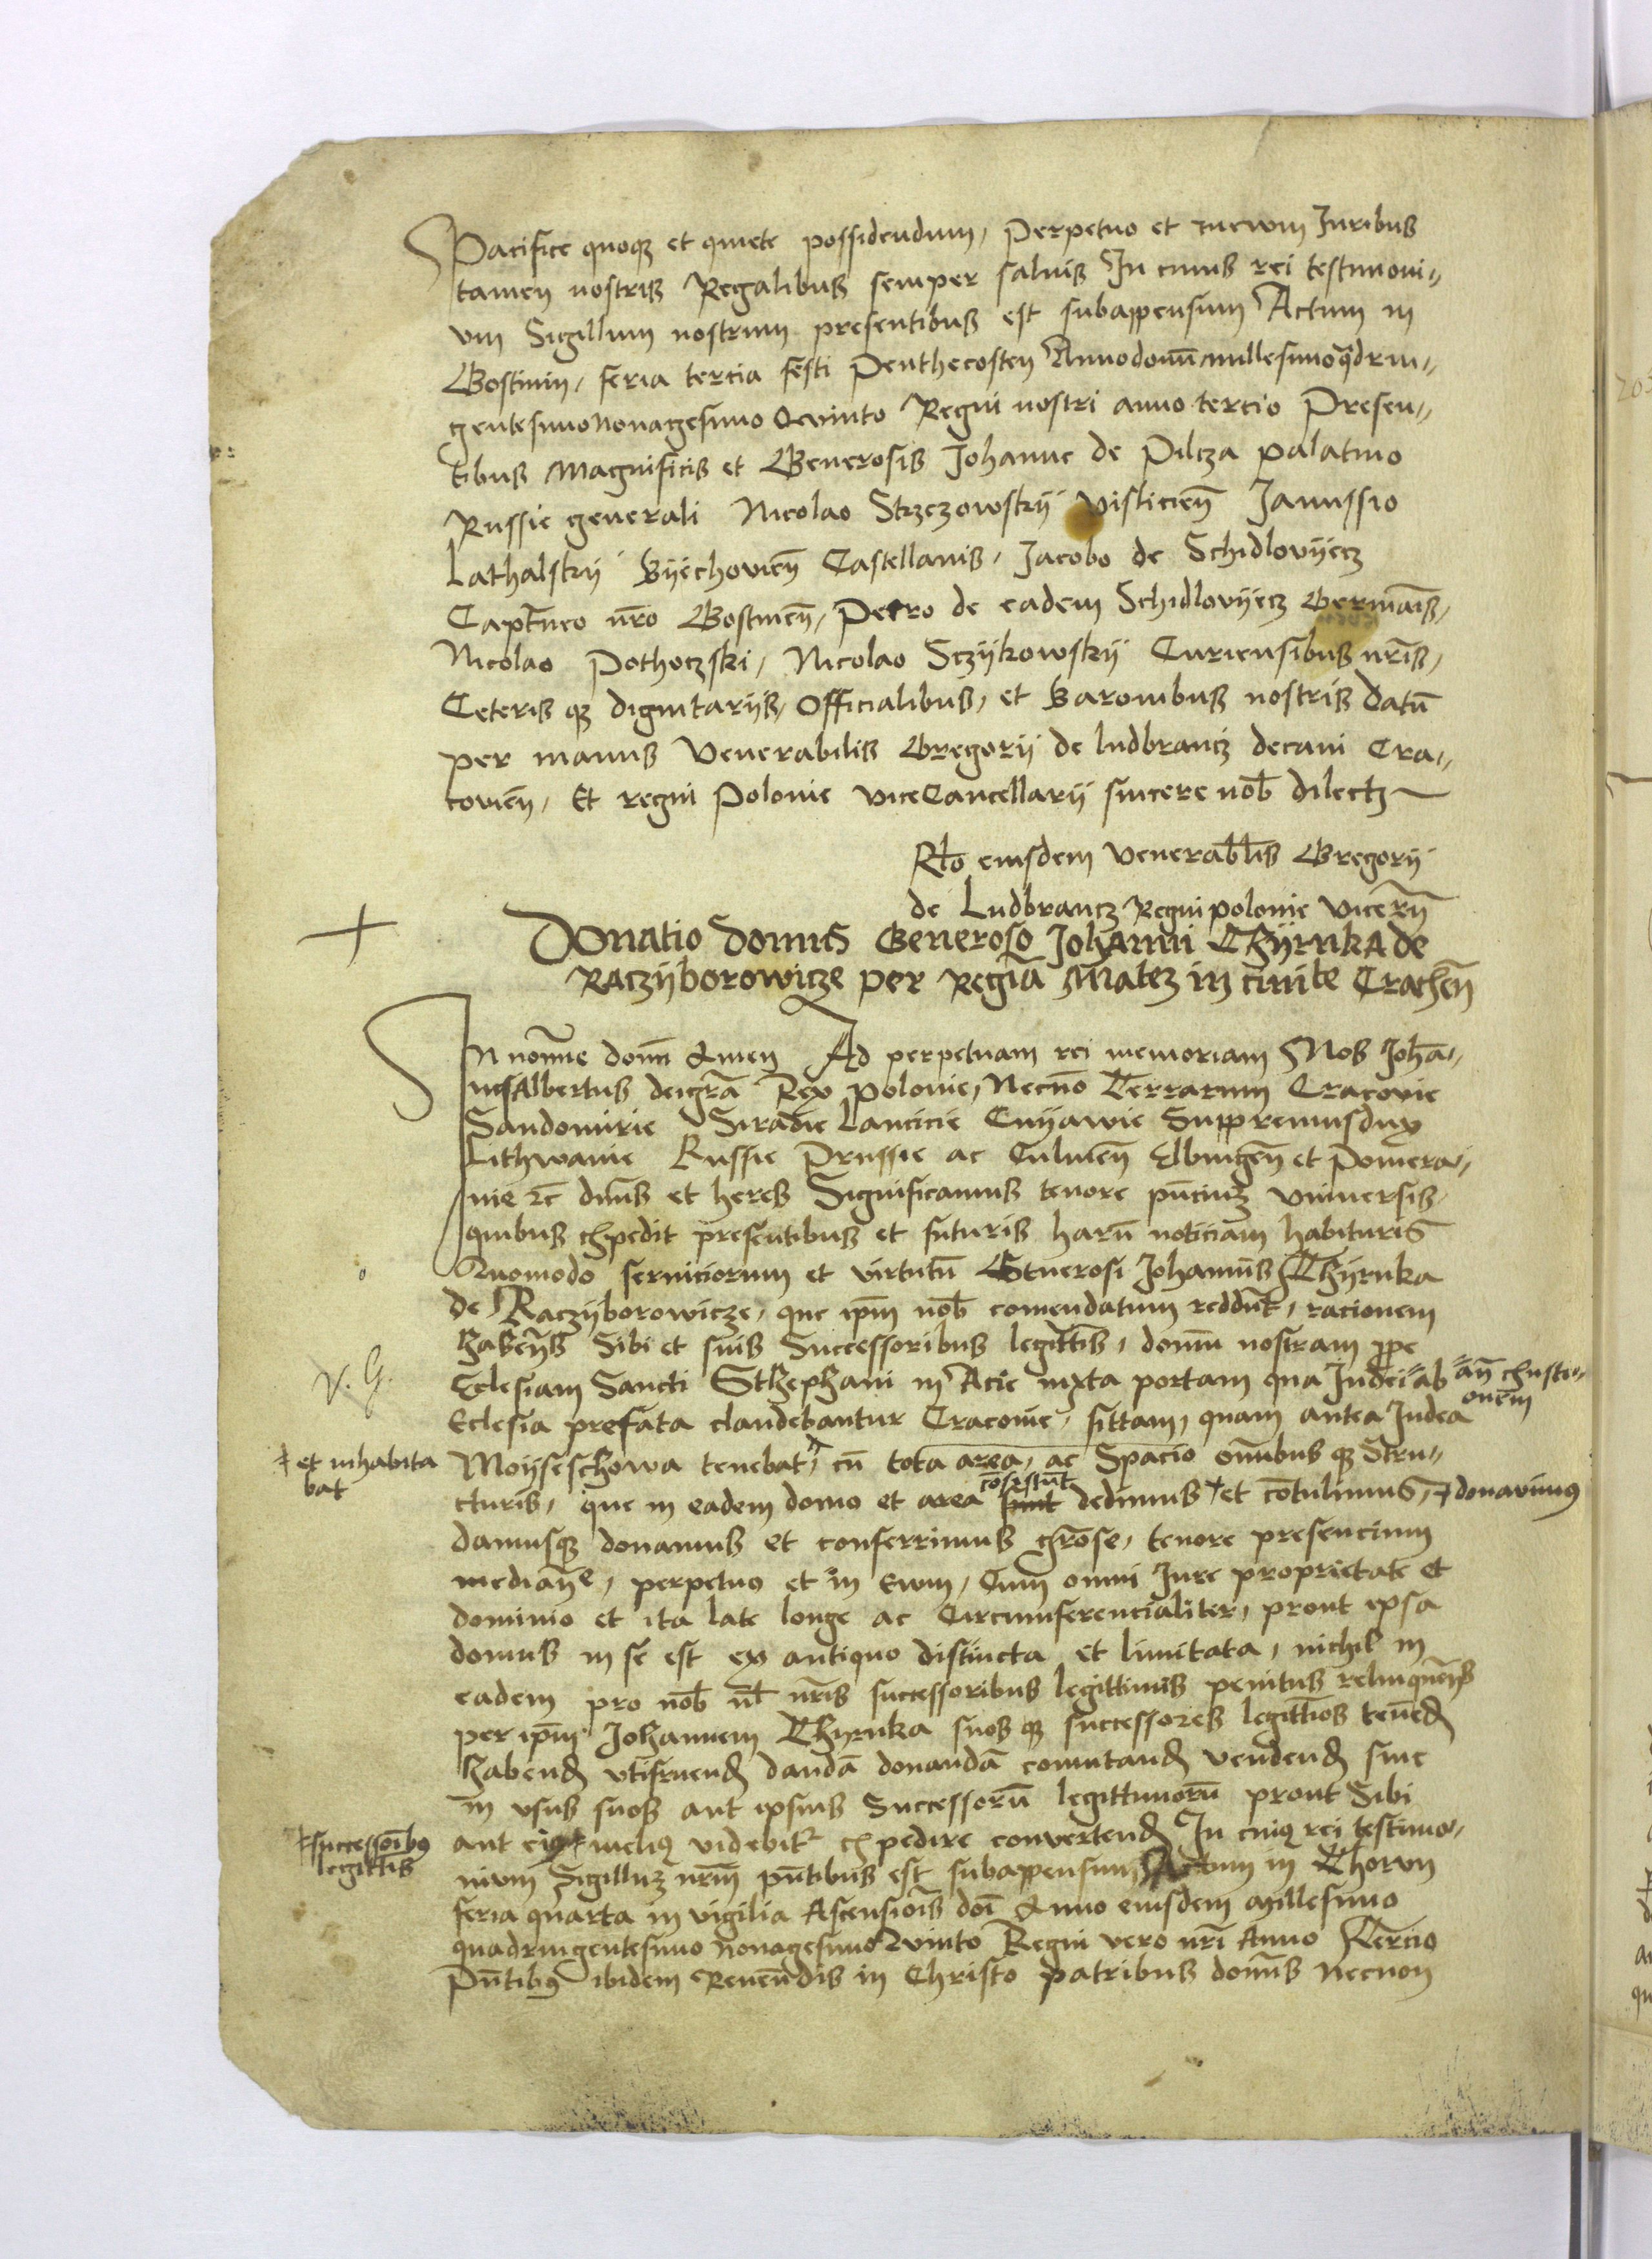 Pacifice quoqꝫ et quiete possidendum, Perpetuo et in ewm Iuribus
tamen nostris Regalibus semper saluis In cuius rei testimoni„
vm Sigillum nostrum presentibus est subappensum Actum in
Gostinin, feria tercia festi Penthecosten Anno domī millesimo q̄drin„
gentesimo Nonagesimo Qvinto Regni nostri anno tercio Presen„
tibus Magnificis et Generosis Johanne de Pilcza palatino
Russie generali Nicolao Strzezowskÿ visliciēn Janussio
Lathalskÿ Byechoviēn Castellanis, Jacobo de Schidlovÿecz
Captneo n̄ro Gostinēn, Petro de eadem Schidlovÿecz Germāis,
Nicolao Pothoczski, Nicolao Sczÿkowskÿ Curiensibus n̄ris,
Ceteris qꝫ dignitarÿs, Officialibus, et Baronibus nostris datū
per manus Venerabilis Gregorÿ de ludbrancz decani Cra„
coviēn, Et regni Polonie viceCancellarÿ sincere nob̄ dilectꝫ
Rl̄o eiusdem venerabl̄is Gregorÿ
de Ludbrancz Regni polonie vicec̄n
Donatio domus Generoso Johanni Thÿrnka de
Raczÿborowicze per Regiā Matēꝫ in ciuite Cracħen
In noīne domī Amen Ad perpetuam rei memoriam Nos Joħa„
nes Albertus dei gr̄a Rex polonie, Necnō Terrarum Cracovie
Sandomirie Siradie Lancicie Cuÿawie Suppremus dux
Lithwanie Russie Prussie ac Culmēn Elbingēn et Pomera„
nie ꝛc̄ dn̄us et heres Significamus tenore pn̄ciuꝫ vniuersis,
quibus expedit presentibus et futuris harū noticiam habituris
Quomodo seruiciorum et virtutū Generosi Johannis Thÿrnka
de Raczÿborowicze, que ip̄m nob̄ comendatum reddūt, racionem
habēns Sibi et suis Successoribus legittīs, domū nostram ꝓpe
V. G.
Eclesiam Sancti Sthephani in Acie iuxta portam qua Iudei ab an̄
Eclesia prefata claudebantur Cracovie, sittam, quam antea Iudea
ēxusti„
onēm
Moÿseschowa tenebat, cū tota area, ac Spacio omībus qꝫ Stru„
et inhabita
bat
cturis, que in eadem domo et area sunt dedimus et cōtulimus,
cōsistūt
donavimus
damusqꝫ donamus et conferrimus gr̄ose, tenore presencium
mediān̄e, perpetuo et in Ewm, Cum omni Iure proprietate et
dominio et ita late longe ac Circumferencialiter, prout ipsa
domus in se est ex antiquo distincta et limitata, nichil in
eadem pro nob̄ ul̄ n̄ris successoribus legittimis penitus relinquēns
per ip̄m Johannem Thyrnka suos qꝫ successores legittīos tenēd
habend utifruend dandā donandā comutand vendend sive
in vsus suos aut ipsius Successorū legittimorū prout Sibi
aut eius meliꝰ videbit᷑ expedire convertend In cuiꝰ rei testimo„
successoībꝰ
legittīs
nivm Sigilluꝫ nr̄m pn̄tibus est subappensum Actum in Thorvn
feria quarta in vigilia Ascensiōis doī Anno eiusdem Millesimo
quadringentesimo Nonagesimo Qvinto Regni vero nr̄i Anno Tercio
Pn̄tibꝰ ibidem Reuēndis in Christo patribus domīs Necnon